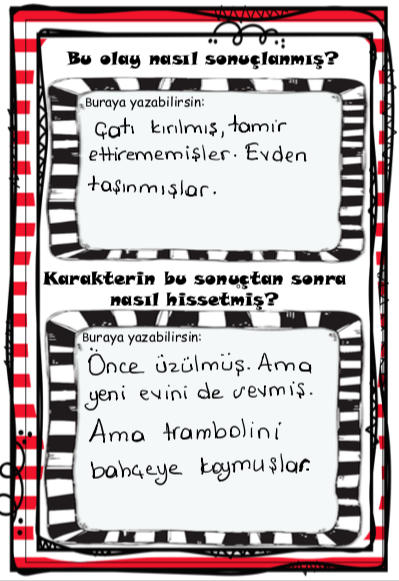 Bu olay nasıl sonuçlanmış?
Buraya yazabilirsin:
Çatı kırılmış, tamir
ettirememişler. Evden
taşınmışlar.
Karakterin bu sonuçtan sonra
nasıl hissetmiş?
Buraya yazabilirsin:
Önce üzülmüş. Ama
yeni evini de sevmiş.
Ama trambolini
bahçeye koymuşlar.